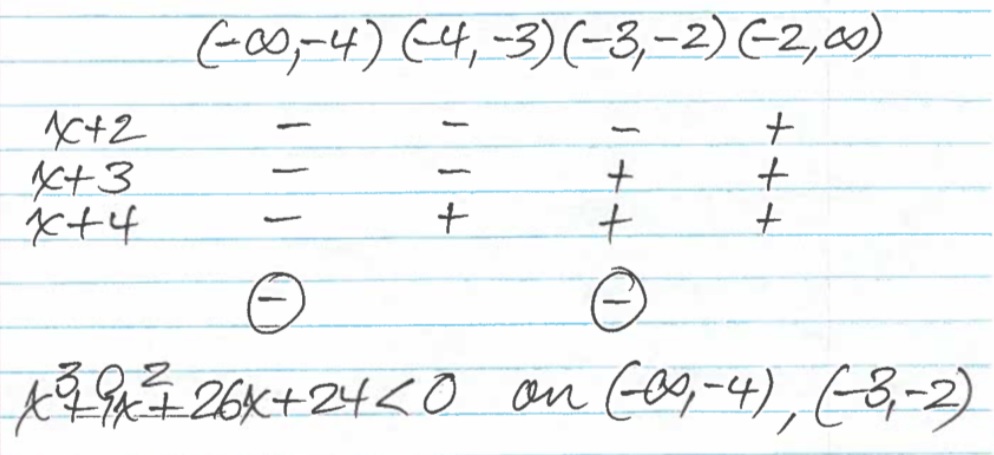 (-∞,-4) (-4,-3) (-3,-2) (-2,∞)
x+2 - - - +
x+3 - - + +
x+4 - + + +
⊖ ⊖
x³+9x²+26x+24<0 on (-∞,-4), (-3,-2)